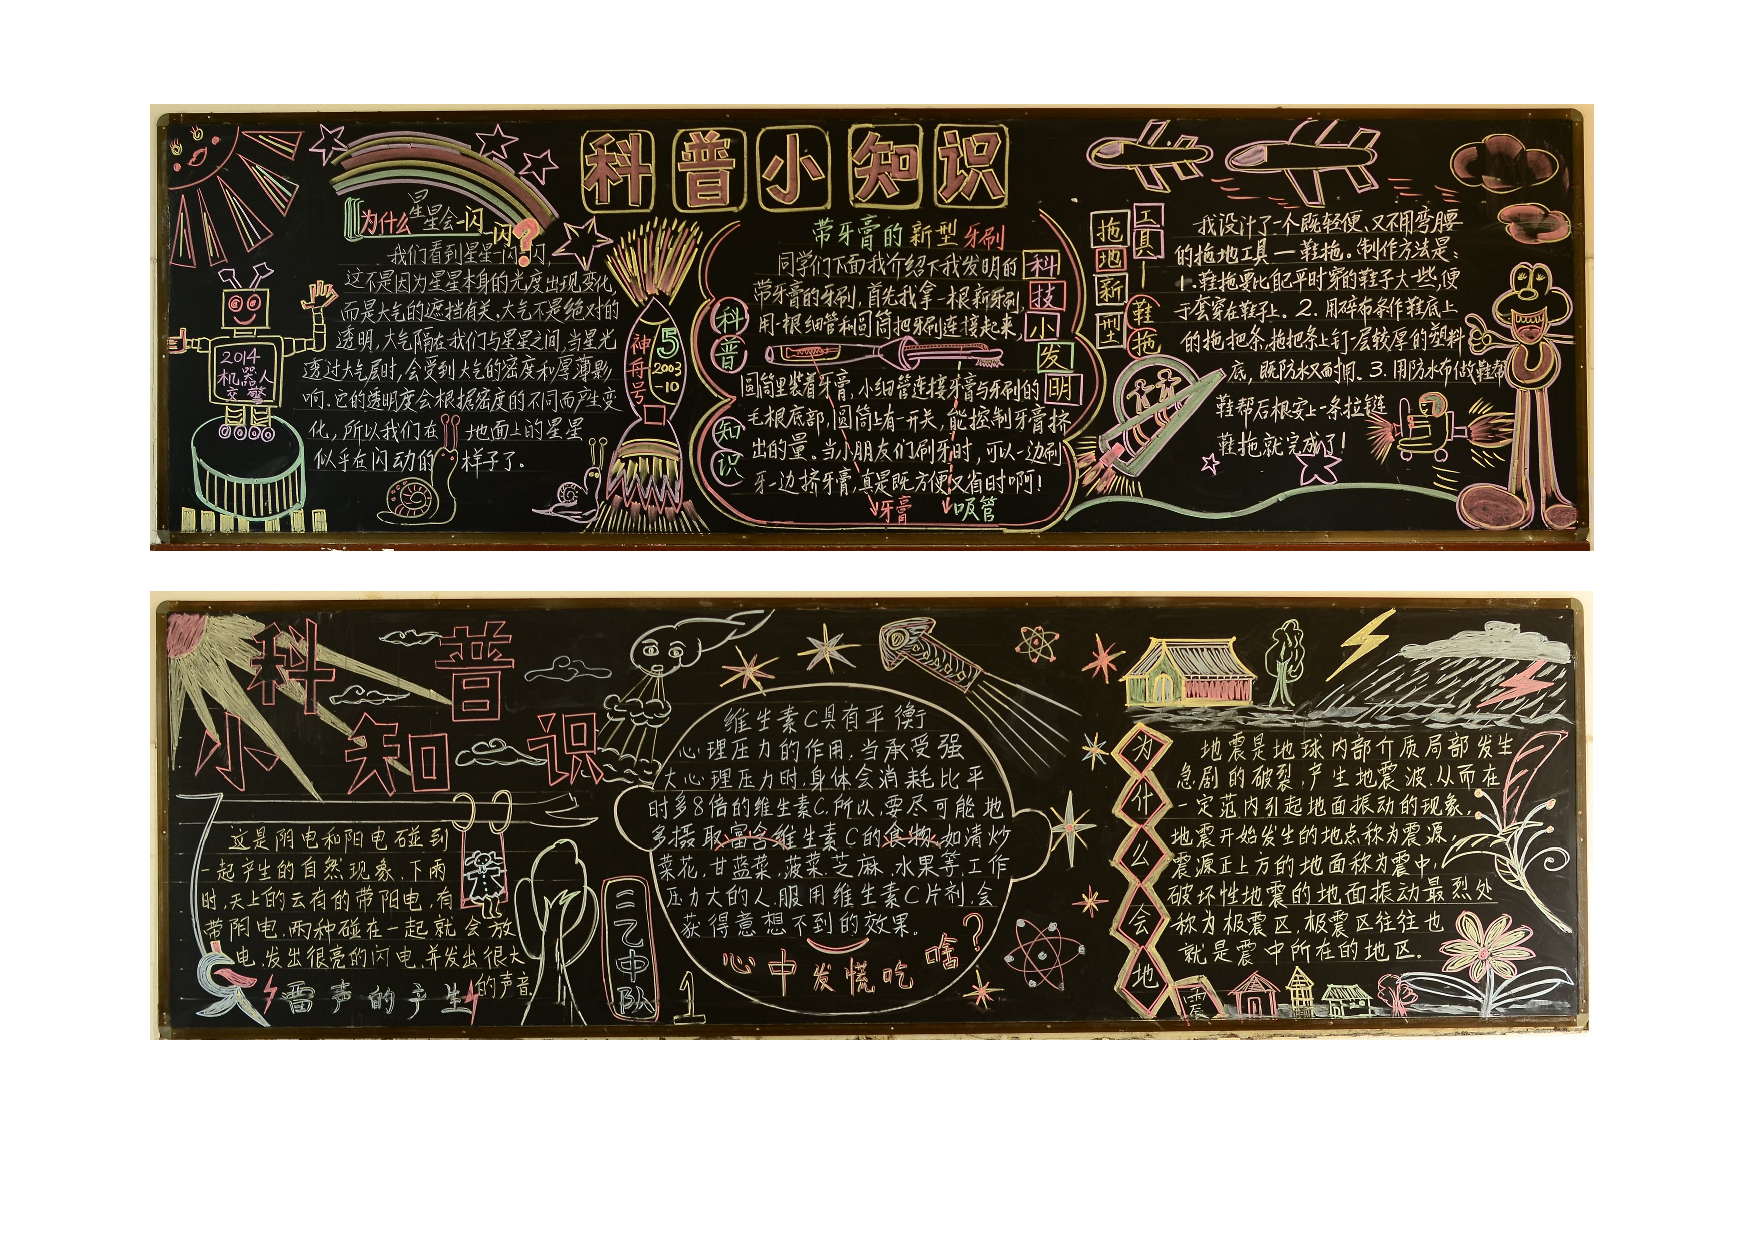 科普小知识
为什么星星会一闪闪?
我们看到星星一闪一闪,
这不是因为星星本身的光度出现变化,
而是大气的遮挡有关,大气不是绝对的
透明,大气隔在我们与星星之间,当星光
透过大气层时,会受到大气的密度和厚薄影
响.它的透明度会根据密度的不同而产生变
化,所以我们在地面上的星星
似乎在闪动的样子了。
2014
机器人
交警
神舟号
5
2003
-10
科普知识
带牙膏的新型牙刷
科技小发明
同学们下面我介绍下我发明的
带牙膏的牙刷,首先我拿一根新牙刷,
用一根细管和圆筒把牙刷连接起来,
圆筒里装着牙膏,小细管连接牙膏与牙刷的
毛根底部,圆筒上有一开关,能控制牙膏挤
出的量。当小朋友们刷牙时,可以一边刷
牙一边挤牙膏,真是既方便又省时啊!
牙膏 吸管
拖地新型
工具—鞋拖
我设计了一个既轻便、又不用弯腰
的拖地工具—鞋拖。制作方法是:
1.鞋拖要比自己平时穿的鞋子大一些,便
于套穿在鞋子上。2.用碎布条作鞋底上
的拖把条,拖把条上钉一层较厚的塑料
底,既防水又耐用。3.用防水布做鞋帮
鞋帮后根安上一条拉链
鞋拖就完成了!
科普
小知识
这是阴电和阳电碰到
一起产生的自然现象.下雨
时,天上的云有的带阳电,有
带阴电,两种碰在一起就会放
电,发出很亮的闪电,并发出很大
的声音.
雷声的产生
二乙中队
1
维生素C具有平衡
心理压力的作用,当承受强
大心理压力时,身体会消耗比平
时多8倍的维生素C,所以,要尽可能地
多摄取富含维生素C的食物,如清炒
菜花,甘蓝菜,菠菜,芝麻,水果等,工作
压力大的人,服用维生素C片剂,会
获得意想不到的效果。
心中发慌吃啥?
为什么会地震
地震是地球内部介质局部发生
急剧的破裂,产生地震波,从而在
一定范内引起地面振动的现象,
地震开始发生的地点称为震源,
震源正上方的地面称为震中,
破坏性地震的地面振动最烈处
称为极震区,极震区往往也
就是震中所在的地区.